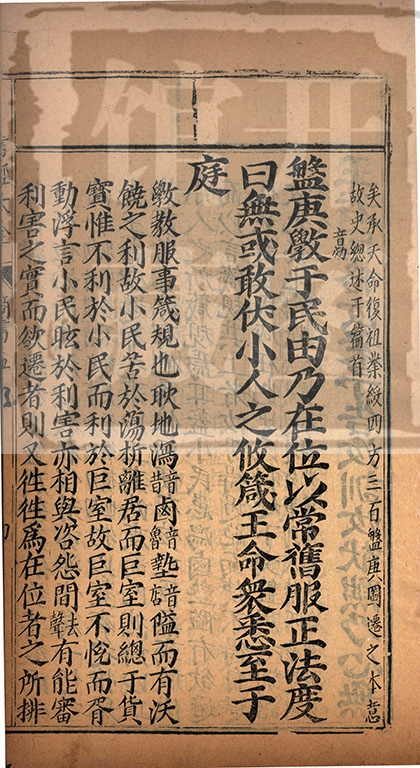 矣承天命復祖業綏四方三百盤庚圖遷之本意
故史總述于篇首
盤庚斆于民由乃在位以常舊服正法度
曰無或敢伏小人之攸箴王命衆悉至于
庭
斆教服事箴規也耿地潟音昔鹵音魯墊音店隘而有沃
饒之利故小民苦於蕩析離居而巨室則總于貨
寶惟不利於小民而利於巨室故巨室不悅而胥
動浮言小民眩於利害亦相與咨怨間去聲有能審
利害之實而欲遷者則又徃徃爲在位者之所排